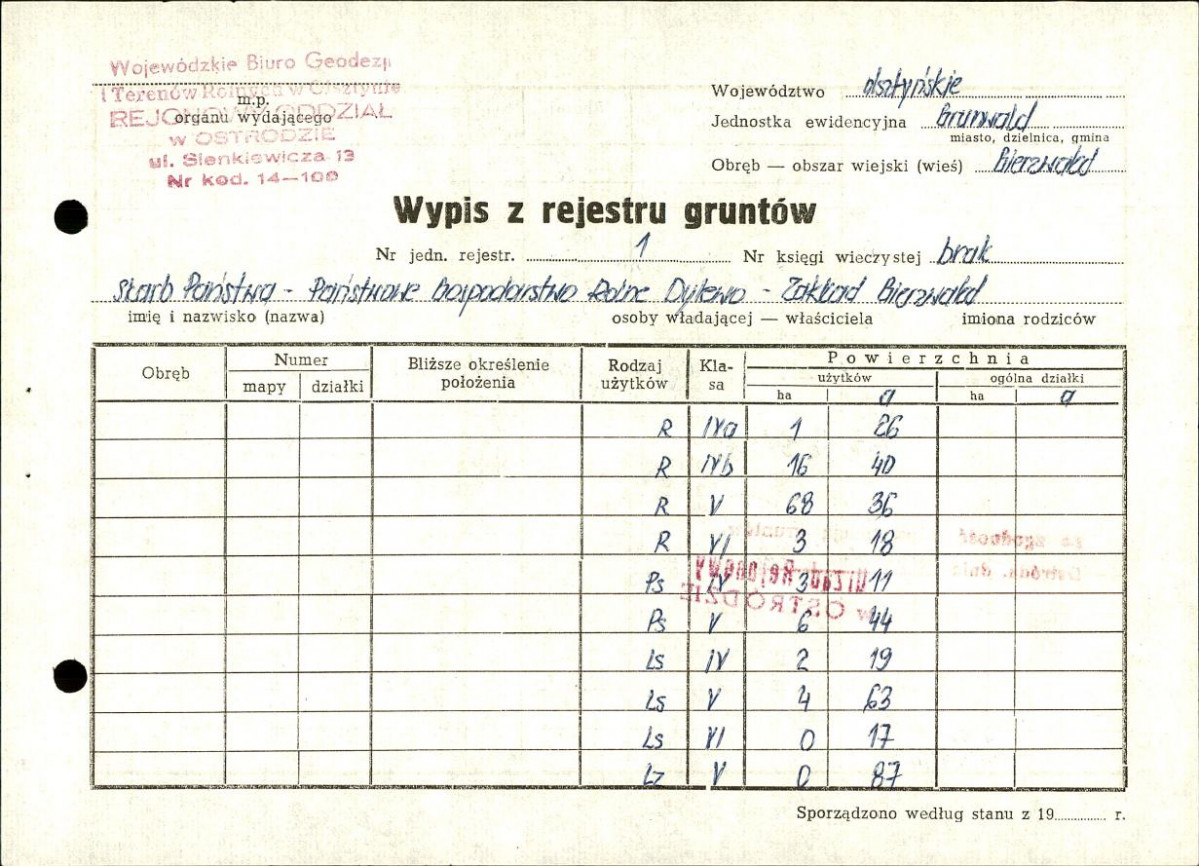 Wojewódzkie Biuro Geodezji
i Terenów Rolnych w Olsztynie
m.p.
REJONOWY ODDZIAŁ
organu wydającego
w OSTRÓDZIE
ul. Sienkiewicza 13
Nr kod. 14—100
Województwo olsztyńskie
Jednostka ewidencyjna Grunwald
miasto, dzielnica, gmina
Obręb — obszar wiejski (wieś) Bierzwałd
Wypis z rejestru gruntów
Nr jedn. rejestr. 1 Nr księgi wieczystej brak
Skarb Państwa - Państwowe Gospodarstwo Rolne Dylewo - Zakład Bierzwałd
imię i nazwisko (nazwa) osoby władającej — właściciela imiona rodziców
Obręb Numer Bliższe określenie położenia Rodzaj użytków Kla-sa Powierzchnia
mapy działki użytków ogólna działki
ha a ha a
R IVa 1 26
R IVb 16 40
R V 68 36
R VI 3 18
za zgodność
Ostróda, dnia
Ps IV 3 11
Urząd Rejonowy
w OSTRÓDZIE
Ps V 6 44
Ls IV 2 19
Ls V 4 63
Ls VI 0 17
Lz V 0 87
Sporządzono według stanu z 19 r.